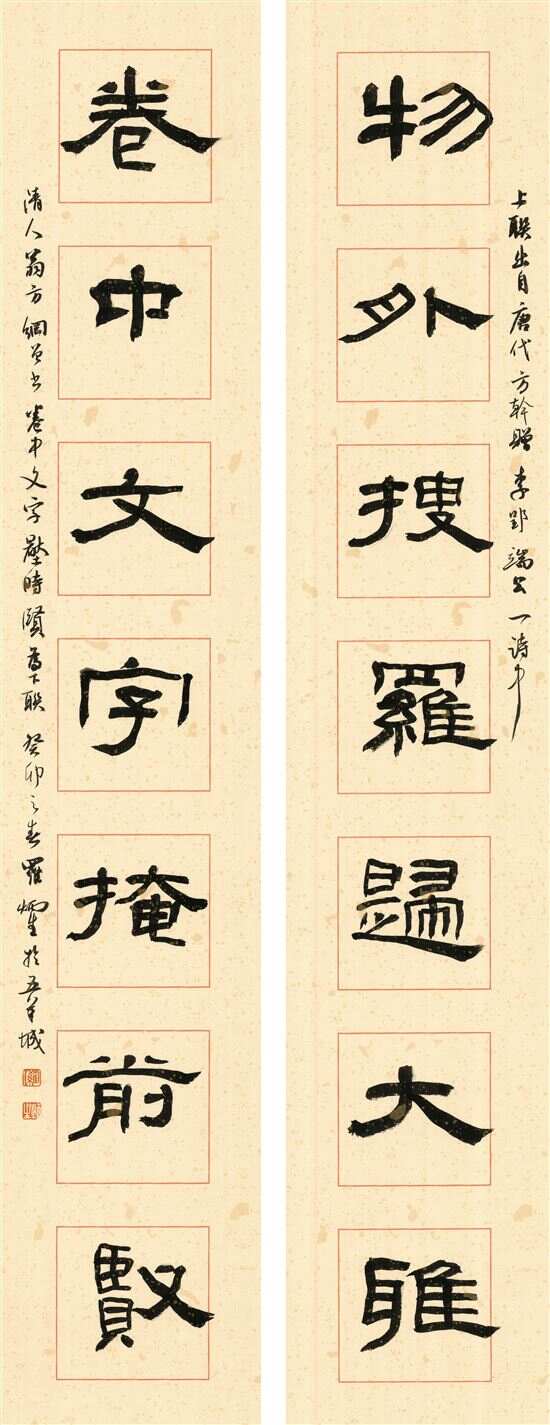 物外搜羅歸大雅
上聯出自唐代方幹贈李郢端公一詩中
卷中文字掩前賢
清人翁方綱曾書卷中文字壓時賢為下聯 癸卯之春羅炳生於五羊城